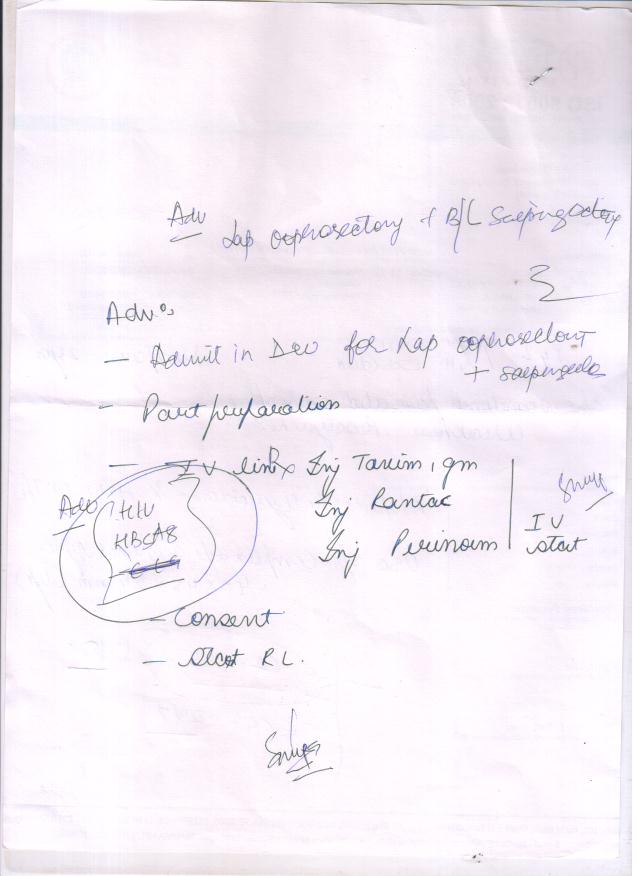 Adv
Lap oophorectory + B/L Salpingectory
Adv:
- Admit in Deo for Lap oophorectomy
+ salpingecto
- Part preparation
- IV line Inj Taxim 1gm
Inj Rantac
Inj Perinorm
IV
start
Adv
HIV
HBSAg
- Consent
- Start RL.